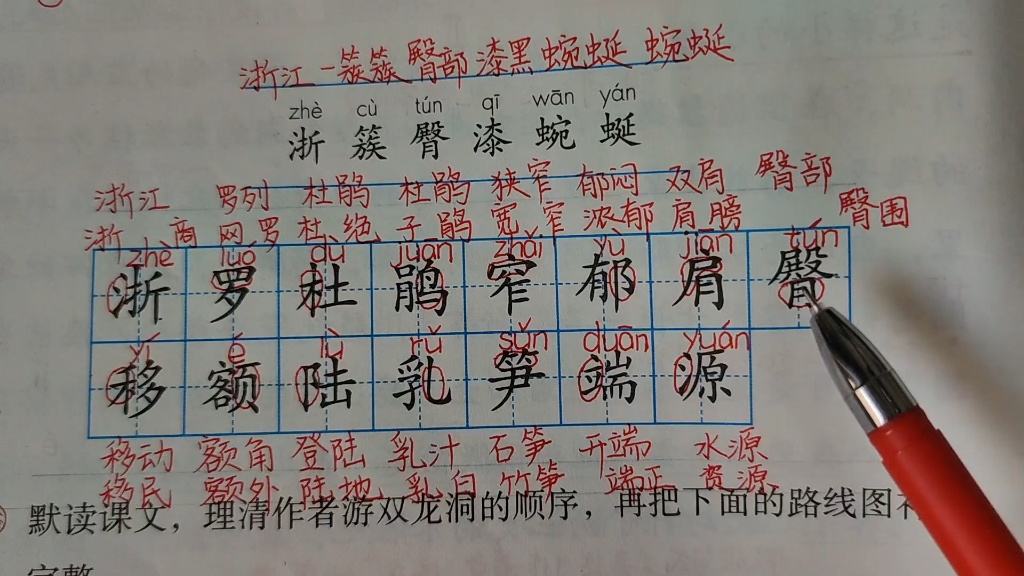 浙江 一簇簇 臀部 漆黑 蜿蜒 蜿蜒
zhè cù tún qī wān yán
浙 簇 臀 漆 蜿 蜒
浙江 罗列 杜鹃 杜鹃 狭窄 郁闷 双肩 臀部
浙商 网罗 杜绝 子鹃 宽窄 浓郁 肩膀 臀围
zhè luó dù juān zhǎi yù jiān tún
浙 罗 杜 鹃 窄 郁 肩 臀
yí é lù rǔ sǔn duān yuán
移 额 陆 乳 笋 端 源
移动 额角 登陆 乳汁 石笋 开端 水源
移民 额外 陆地 乳白 竹笋 端正 资源
默读课文，理清作者游双龙洞的顺序，再把下面的路线图补
完整